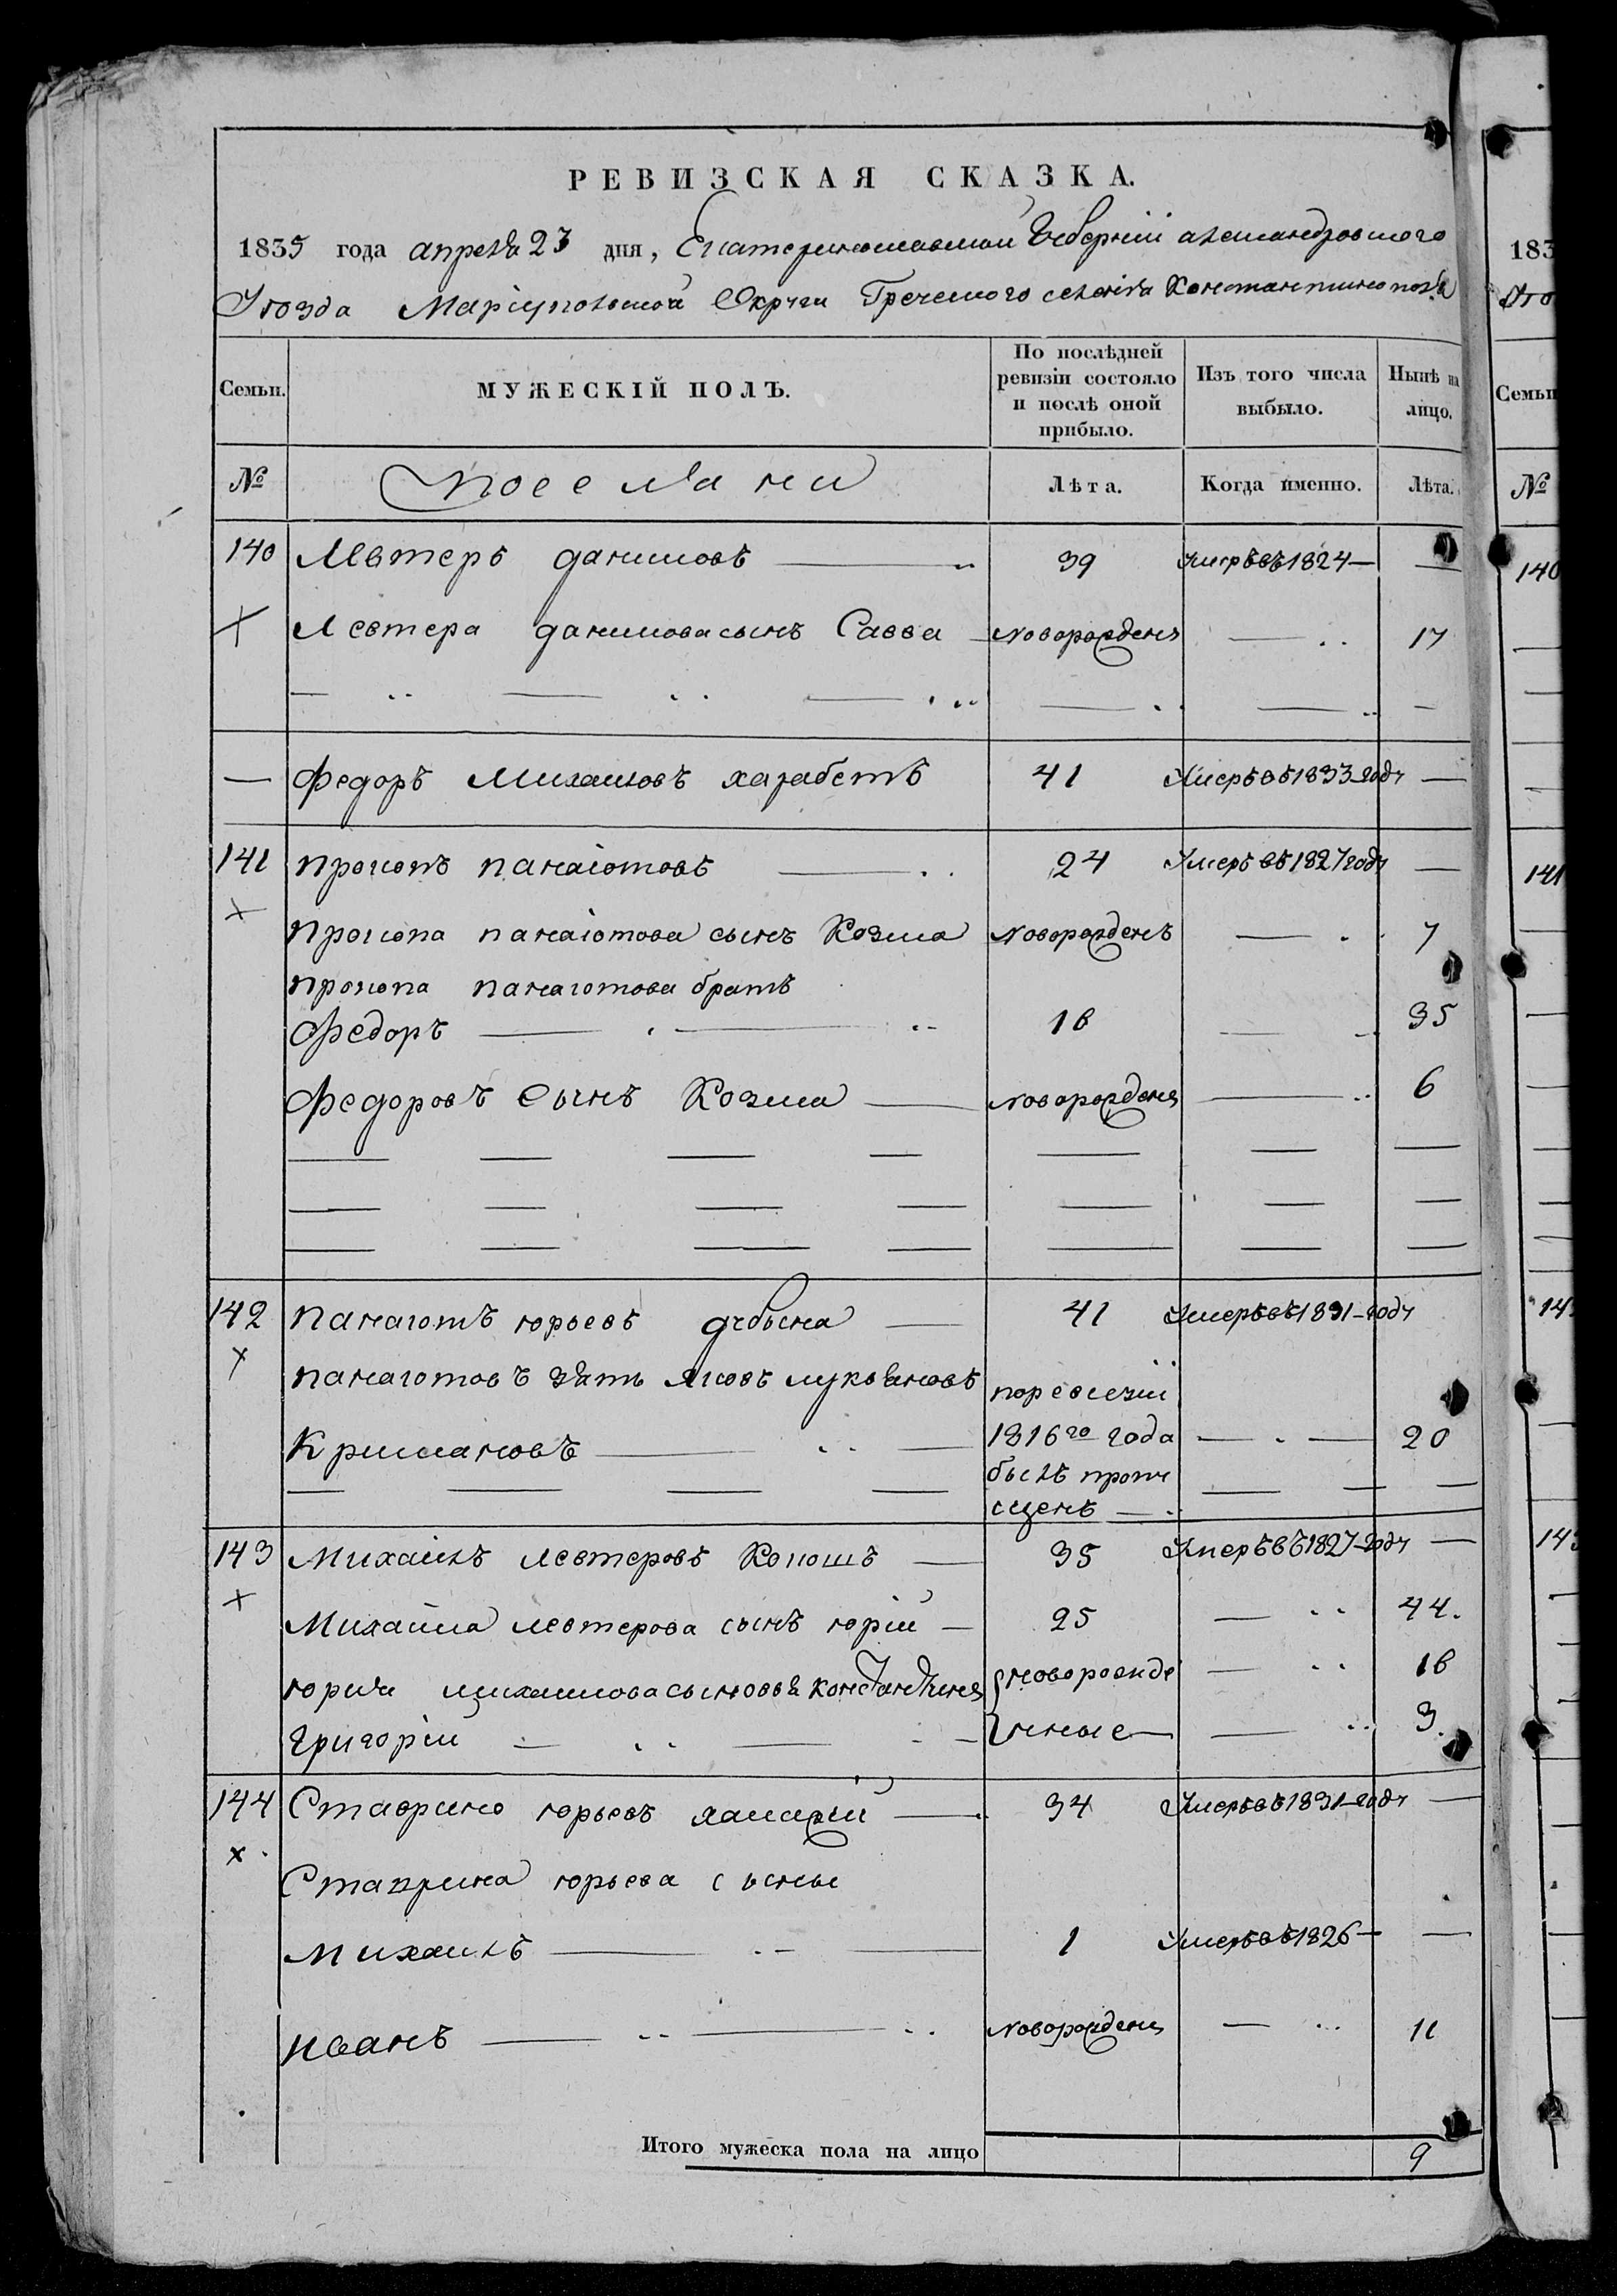 РЕВИЗСКАЯ СКАЗКА.
1835 года апреля 23 дня, Екатеринославской Губерніи александровского
Уезда Маріупольской Округи Греческого селенія Константинополя
Семьи. МУЖЕСКІЙ ПОЛЪ. По послѣдней ревизіи состояло и послѣ оной прибыло. Изъ того числа выбыло. Нынѣ на лицо.
№ поселяни Лѣта. Когда именно. Лѣта.
140 Левтеръ даниловъ 39 Умеръ въ 1824 —
Левтера данилова сынъ Савва новорожденъ — 17
— Федоръ Михаиловъ харабетъ 41 Умеръ въ 1833 году —
141 прокопъ панаіотовъ 24 Умеръ въ 1827 году —
прокопа панаіотова сынъ Козма новорожденъ — 7
прокопа панаготова братъ
Федоръ 16 — 35
Федоровъ Сынъ Козма новорожденъ — 6
142 панаготъ юрьевъ 41 Умеръ въ 1831 году
панаготовъ зять Яковъ лукьяновъ по ревизіи
1816го года — 20
былъ пропу
щенъ
143 Михаилъ левтеровъ Кокошъ 35 Умеръ въ 1827 году —
Михаила левтерова сынъ юрій 25 — 44.
юрия михаилова сыновья константинъ новорожде — 18
григорій нные — 3.
144 Ставрино юрьевъ 34 Умеръ въ 1831 году —
Ставрина юрьева сыны
михаилъ 1 Умеръ въ 1826 —
иванъ новорожденъ — 11
Итого мужеска пола на лицо 9
183
Семьи
№
140
141
14
143